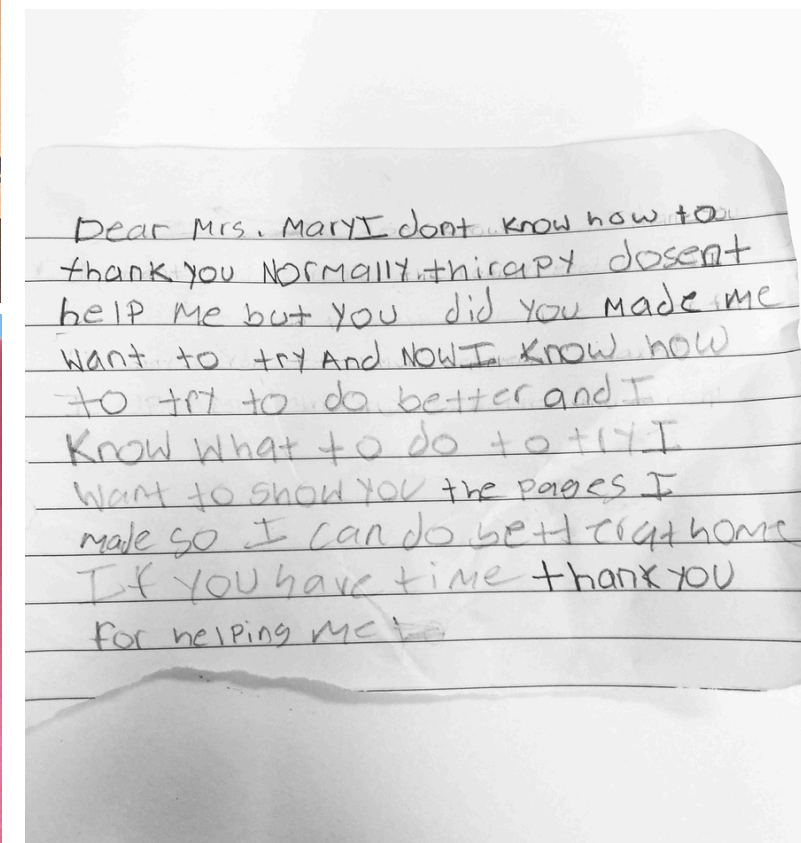 Dear Mrs. Mary I dont know how to
thank you Normally thirapy dosent
help me but you did you made me
want to try And Now I know how
to try to do better and I
know what to do to try I
want to show you the pages I
made so I can do better at home
If you have time thank you
for helping me